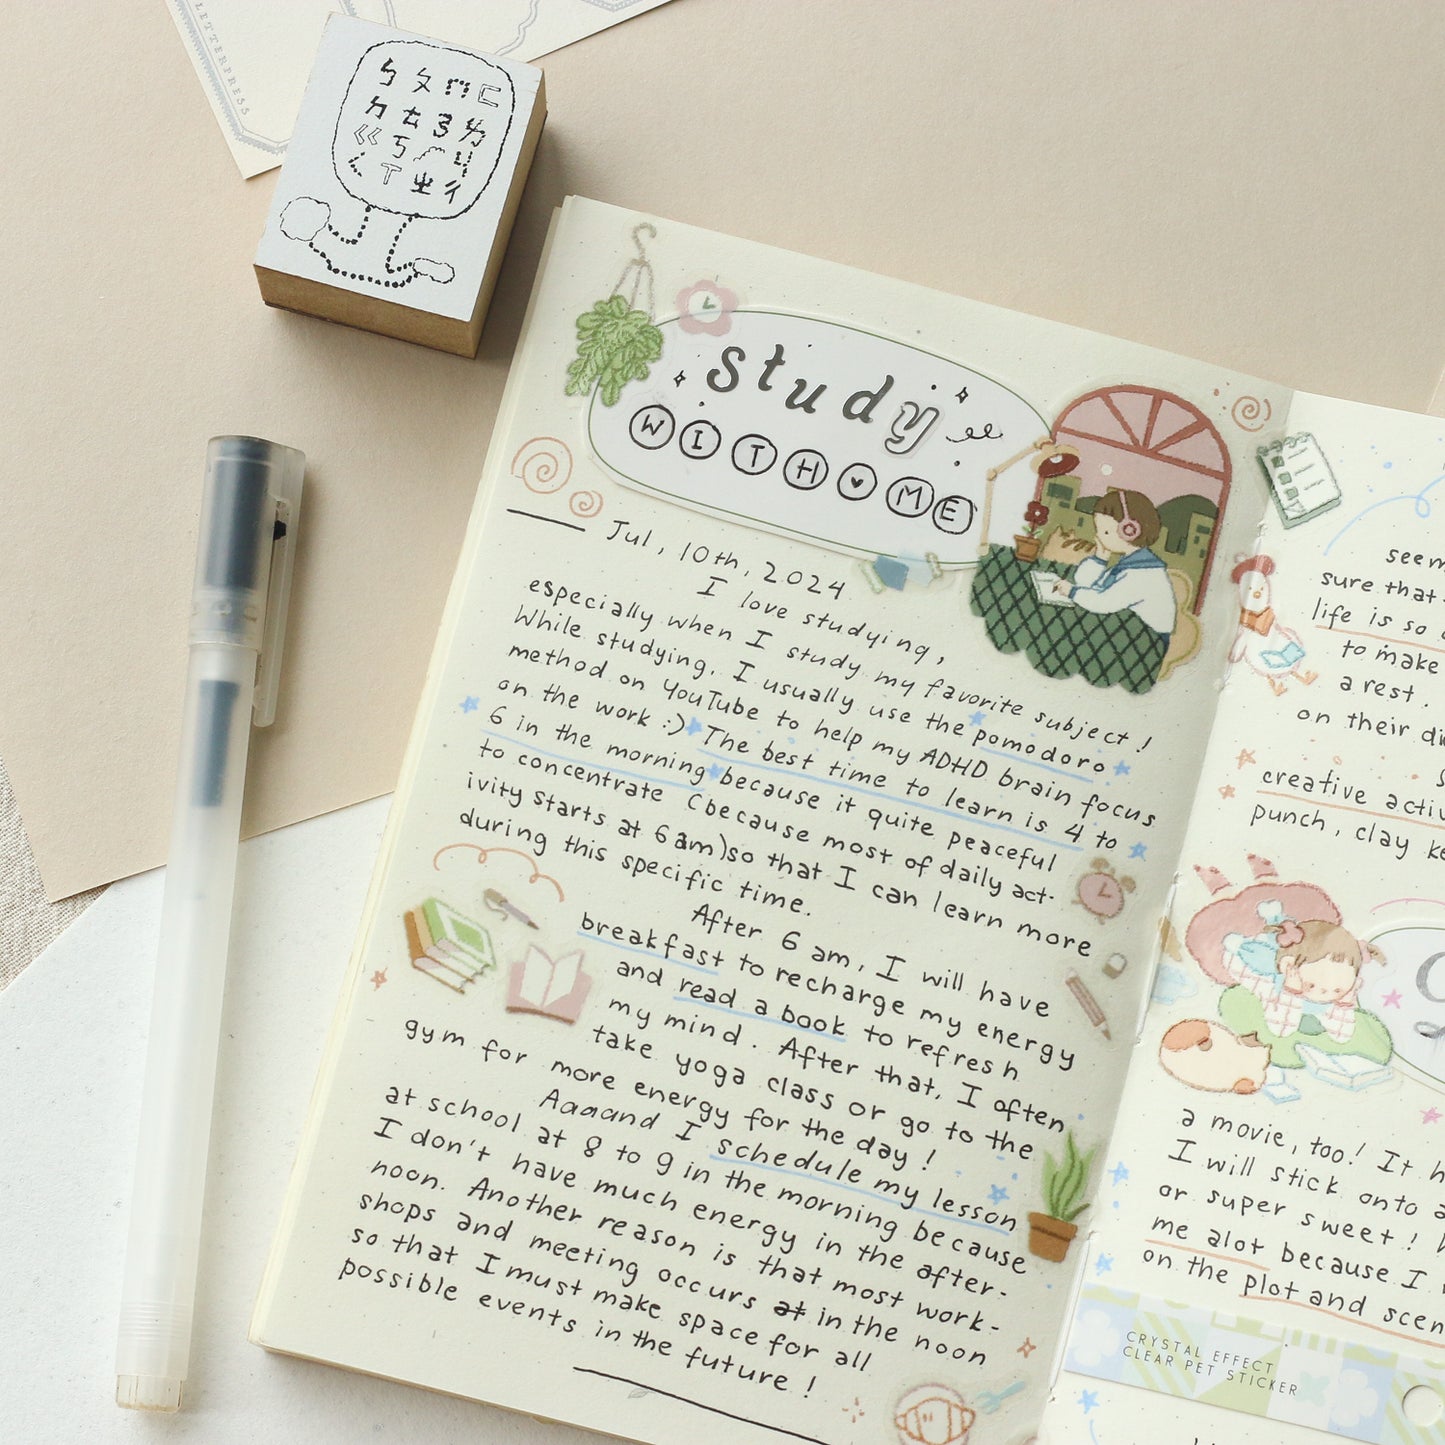 LETTERPRESS
ㄅㄆㄇㄈ
ㄉㄊㄋㄌ
ㄍㄎㄏㄐ
ㄑㄒㄓㄔ
study
WITH ME
Jul, 10th, 2024
I love studying,
especially when I study my favorite subject!
While studying, I usually use the pomodoro
method on YouTube to help my ADHD brain focus
on the work :) The best time to learn is 4 to
6 in the morning because it quite peaceful
to concentrate (because most of daily act-
ivity starts at 6am) so that I can learn more
during this specific time.
After 6 am, I will have
breakfast to recharge my energy
and read a book to refresh
my mind. After that, I often
take yoga class or go to the
gym for more energy for the day!
Aaaand I schedule my lesson
at school at 8 to 9 in the morning because
I don't have much energy in the after-
noon. Another reason is that most work-
shops and meeting occurs at in the noon
so that I must make space for all
possible events in the future!
seem
sure that
life is so
to make
a rest.
on their
creative
punch, clay
a movie, too! It
I will stick onto
or super sweet!
me alot because I
on the plot and
CRYSTAL EFFECT
CLEAR PET STICKER